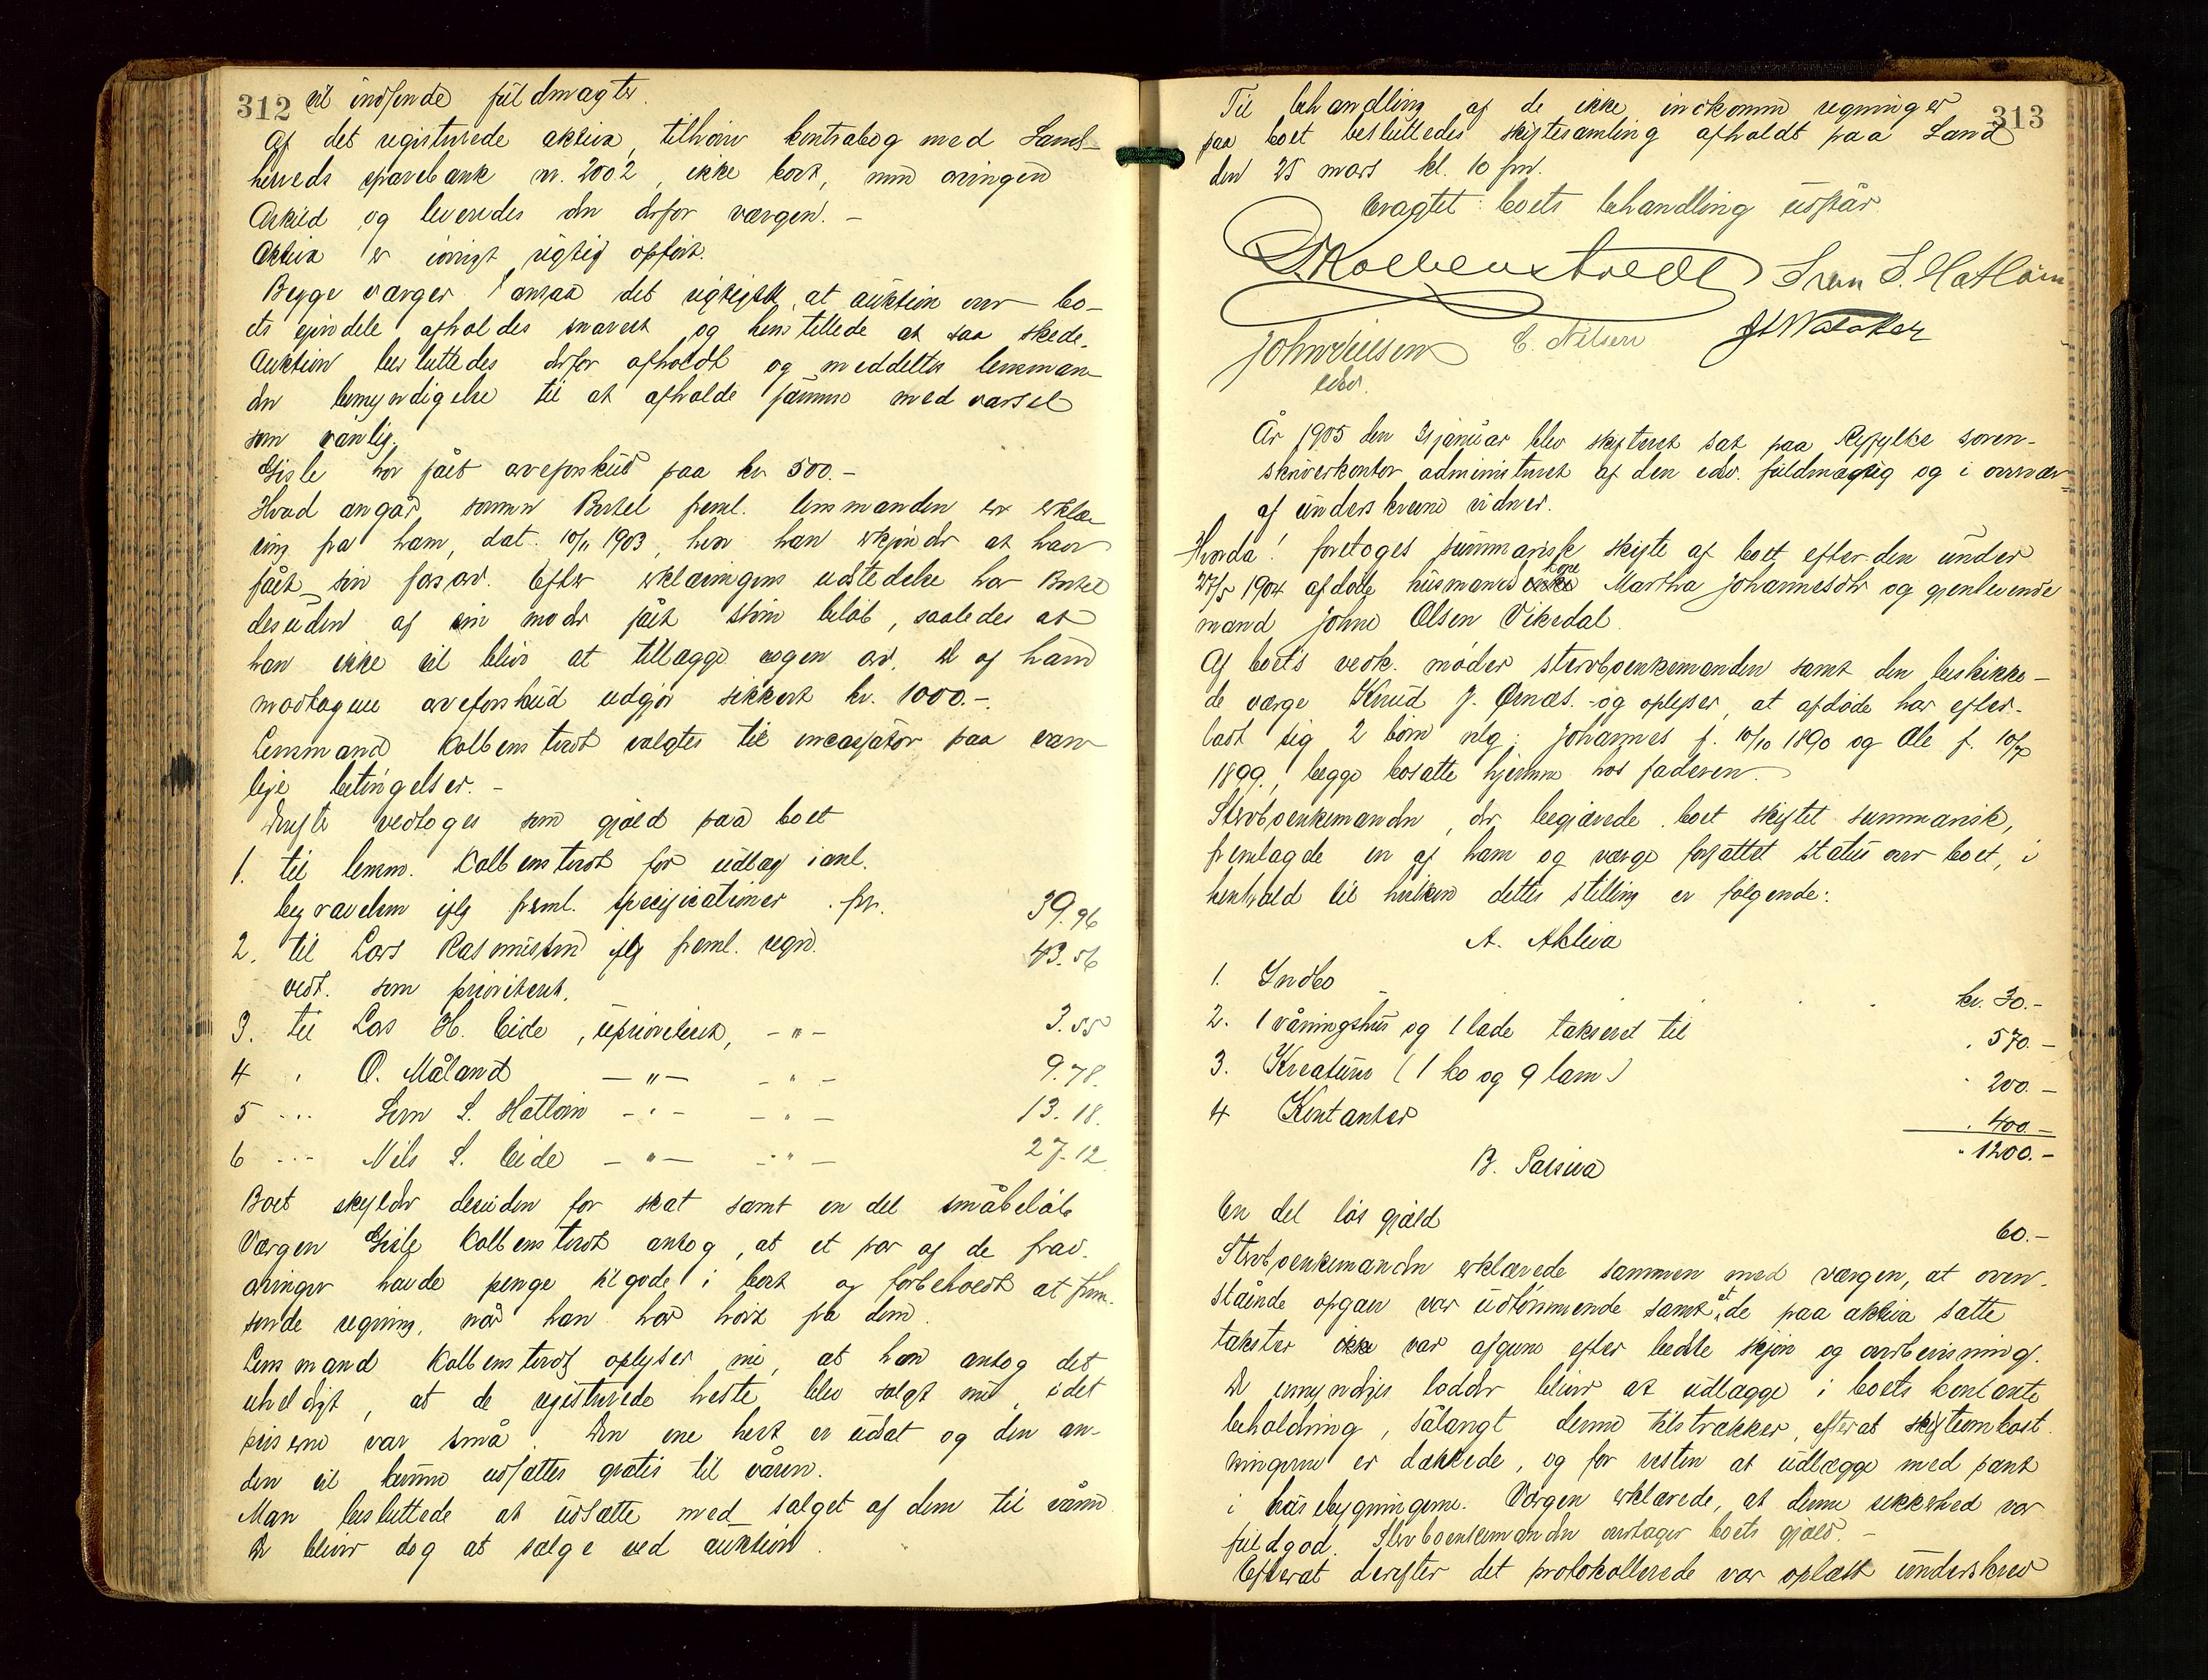 312 til indsende fuldmagter.
Af det registrerede aktiva, tilhører kontrabog med Sands-
herreds sparebank nr. 2002, ikke boet, men arvingen
Askild og leveredes den derfor værgen. -
Aktiva er iøvrigt rigtig opført.
Begge værger ansaa det rigtigst, at auktion over bo-
ets eiendele afholdes snarest og henstillede at saa skede.
Auktion besluttedes derfor afholdt og meddeltes lensman-
den bemyndigelse til at afholde samme med varsel
som vanlig.
Gisle har fåt arveforskud paa kr. 500.-
Hvad angår sønnen Bertel freml. lensmanden en erklæ-
ring fra ham, dat. 10/11 1903, hvor han erkjender at have
fåt sin farsarv. Efter erklæringens udstedelse har Bertel
desuden af sin moder fåt større beløb, saaledes at
han ikke vil blive at tillægge nogen arv. De af ham
modtagne arveforskud udgjør sikkert kr. 1000.-
Lensmand Kolbenstvedt valgtes til incassator paa van-
lige betingelser. -
Derefter vedtoges som gjæld paa boet
1. til lensm. Kolbenstvedt for udlæg i anl.
begravelsen iflg freml. specificationer . pr. 39.96
2. til Lars Rasmussen iflg freml. regn. 43.56
vedt. som prioritert.
3. til Lars H. Eide, uprioritert, - " - 3.55
4 " O. Måland - " - - " - 9.78.
5 - " - Sven S. Hatløin - " - - " - 13.18.
6 - " - Nils S. Eide - " - - " - 27.12
Boet skylder desuden for skat samt en del småbeløb
Værgen Gisle Kolbenstvedt antog, at et par af de frav.
arvinger havde penge tilgode i boet og forbeholdt at frem-
sende regning, når han har hørt fra dem.
Lensmand Kolbenstvedt oplyser nu, at han antog det
uheldigt, at de registrerede heste blev solgt nu, idet
priserne var små. Den ene hest er udsat og den an-
den vil kunne udsættes gratis til våren.
Man besluttede at udsætte med salget af dem til våren
De bliver dog at sælge ved auktion.
Til behandling af de ikke indkomne regninger 313
paa boet besluttedes skiftesamling afholdt paa Sand
den 25 mars kl. 10 fm.
Eragtet: boets behandling udstår.
Kolbenstvedt Sven S. Hatløin
John Nilsen E. Nilsen
edsv.
År 1905 den 31 januar blev skifteret sat paa Ryfylke soren-
skriverkontor administreret af den edsv. fuldmægtig og i overvær
af underskrevne vidner.
Hvorda! foretoges summarisk skifte af boet efter den under
27/5 1904 afdøde husmands kone Martha Johannesdtr og gjenlevende
mand Johne Olsen Vikedal.
Af boets vedk. møder stervboenkemanden samt den beskikke-
de værge Knud J. Ørnæs. -og oplyser, at afdøde har efter-
ladt sig 2 børn nlg: Johannes f. 10/10 1890 og Ole f. 10/7
1899, begge bosatte hjemme hos faderen.
Stervboenkemanden, der begjærede boet skiftet summarisk,
fremlagde en af ham og værge forfattet status over boet, i
henhold til hvilken dettes stilling er følgende:
A. Aktiva
1. Indbo kr. 30.-
2. 1 våningshus og 1 lade takseret til " 570.-
3. Kreaturer (1 ko og 9 lam) " 200.-
4 Kontanter " 400.-
" 1200.-
B. Passiva
En del løs gjæld 60.-
Stervboenkemanden erklærede sammen med værgen, at oven-
stående opgave var udtømmende samt at de paa aktiva satte
takster ikke var afgivne efter bedste skjøn og overbevisning.
De umyndiges lodder bliver at udlægge i boets kontante
beholdning, sålangt denne tilstrækker, efterat skifteomkost-
ningerne er dækkede, og for resten at udlægge med pant
i husebygningerne. Værgen erklærede, at denne sikkerhed var
fuldgod. Stervboenkemanden overtager boets gjæld. -
Efterat derefter det protokollerede var oplæst underskrev